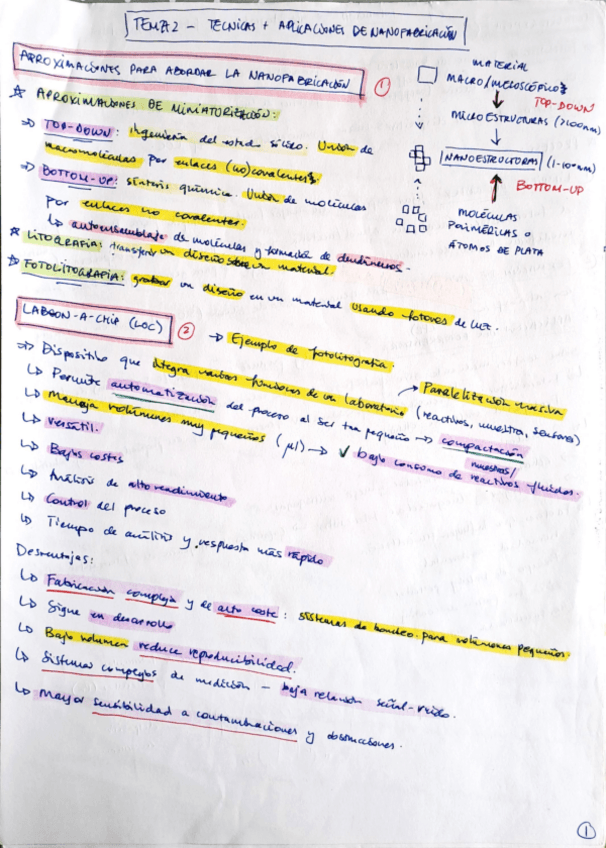 TEMA 2 - TÉCNICAS + APLICACIONES DE NANOFABRICACIÓN
APROXIMACIONES PARA ABORDAR LA NANOFABRICACIÓN
1
☆ APROXIMACIONES DE MINIATURIZACIÓN:
⇒ TOP-DOWN: ingeniería del estado sólido. Unión de
macromoléculas por enlaces (no) covalentes.
⇒ BOTTOM-UP: síntesis química. Unión de moléculas
por enlaces no covalentes.
↳ autoensamblaje de moléculas y formación de dendímeros.
☆ LITOGRAFÍA: transferir un diseño sobre un material.
☆ FOTOLITOGRAFÍA: grabar un diseño en un material usando fotones de luz.
MATERIAL
MACRO/MESOSCÓPICO
TOP-DOWN
MICROESTRUCTURAS (>100nm)
NANOESTRUCTURAS (1-100nm)
BOTTOM-UP
MOLÉCULAS
POLIMÉRICAS o
ÁTOMOS DE PLATA
LAB-ON-A-CHIP (LOC)
2
→ Ejemplo de fotolitografía
⇒ Dispositivo que integra varias funciones de un laboratorio (reactivos, muestra, sensores)
→ Paralelización masiva
↳ Permite automatización del proceso al ser tan pequeño → compactación
↳ Maneja volúmenes muy pequeños (µl) → ✓ bajo consumo de reactivos muestras/fluidos.
↳ Versátil.
↳ Bajos costes
↳ Análisis de alto rendimiento
↳ Control del proceso
↳ Tiempo de análisis y respuesta más rápido
Desventajas:
↳ Fabricación compleja y de alto coste: sistemas de bombeo para volúmenes pequeños.
↳ Sigue en desarrollo
↳ Bajo volumen reduce reproducibilidad.
↳ Sistemas complejos de medición - baja relación señal-ruido.
↳ Mayor sensibilidad a contaminaciones y obstrucciones.
1